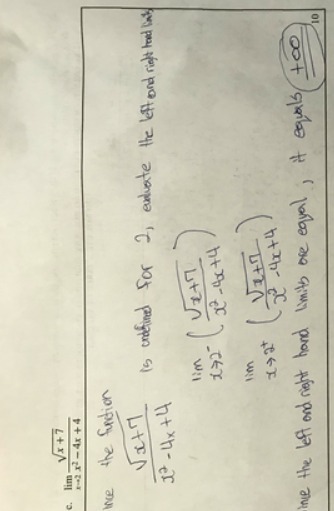 c. lim x→2 √(x + 7) / (x² − 4x + 4)
the function
√(x+7) / (x² - 4x + 4) is undefined for 2, evaluate the left and right hand limits
lim x→2⁻ ( √(x+7) / (x² - 4x + 4) )
lim x→2⁺ ( √(x+7) / (x² - 4x + 4) )
the left and right hand limits are equal, it equals +∞
10